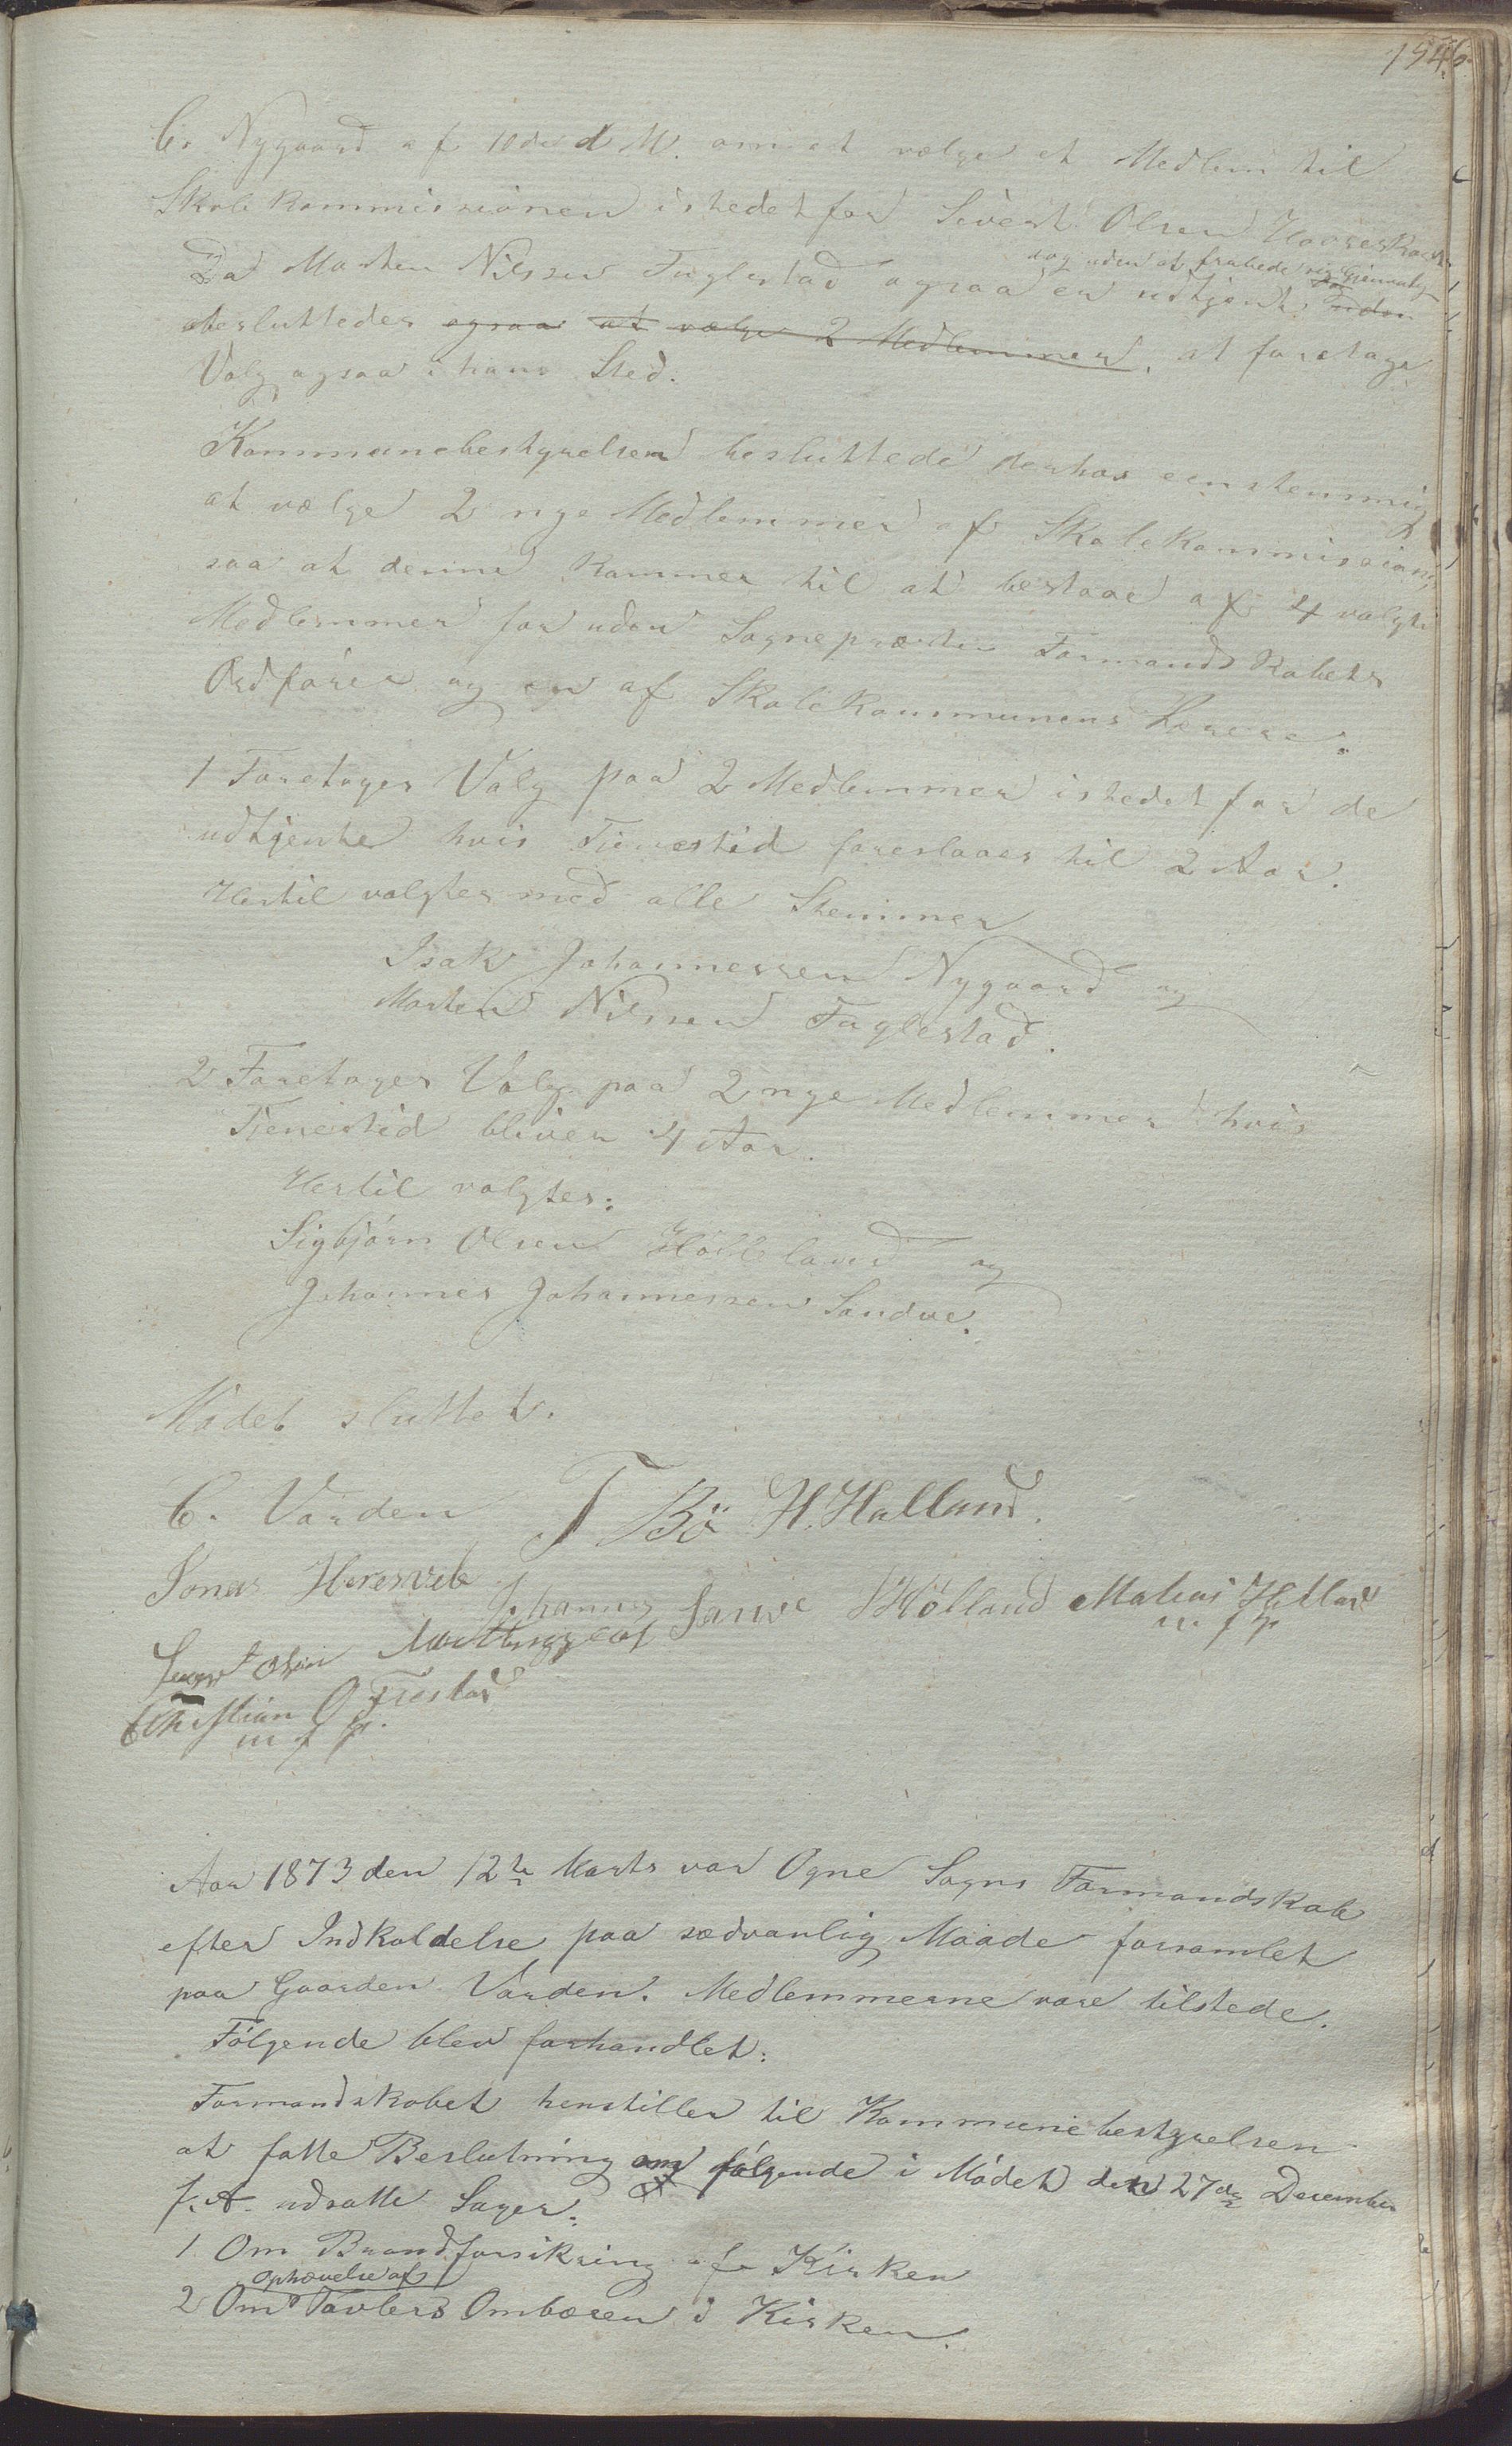 1546
C. Nygaard af 10de d M. om at vælge et Medlem til
Skolekommissionen istedetfor Sivert Olsen
dog uden at frabede sig Gjenvalg
Da Morten Nilssen Fuglestad ogsaa er udtjent, uden
besluttedes ogsaa at vælge 2 Medlemmer, at foretage
Valg ogsaa i hans Sted.
Kommunebestyrelsen besluttede derhos eenstemmig
at vælge 2 nye Medlemmer af Skolekommissionen
saa at denne kommer til at bestaae af 4 valgte
Medlemmer foruden Sognepræsten Formandskabets
Ordförer og en af Skolekommunens Lærere.
1 Foretages Valg paa 2 Medlemmer istedetfor de
udtjente hvis Tjenestid foreslaaes til 2 Aar.
Hertil valgtes med alle Stemmer
Isak Johannessen Nygaard og
Morten Nilssen Fuglestad.
2 Foretages Valg paa 2 nye Medlemmer hvis
Tienestid bliver 4 Aar.
Hertil valgtes:
Sigbjörn Olsen Hölleland og
Johannes Johannessen Sandve.
Mödet sluttet.
C. Varden T Bö H. Halland.
Jonas Heresveb Johannes Sanve Hölland Matias Hetland
m. f p
Olsen
Christian O Fiestad
m f p.
Aar 1873 den 12te Marts var Ogne Sogns Formandskab
efter Indkaldelse paa sædvanlig Maade forsamlet
paa Gaarden Varden. Medlemmerne vare tilstede.
Fölgende blev forhandlet:
Formandskabet henstiller til Kommunebestyrelsen
at fatte Beslutning om fölgende i Mödet den 27de December
f. A. udsatte Sager:
1 Om Brandforsikring af Kirken
Ophævelse af
2 Om Tavlers Ombæren i Kirken.